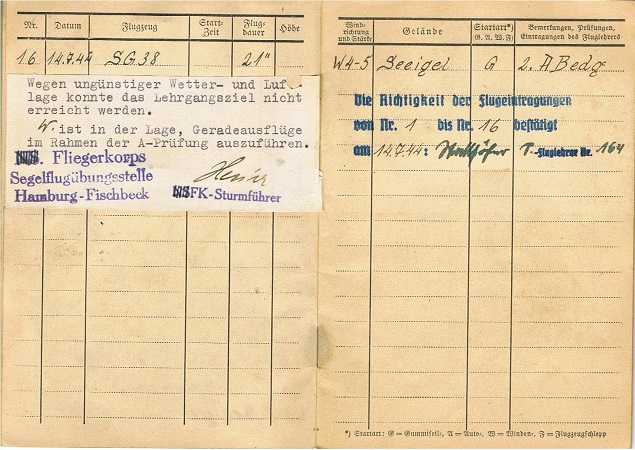 Nr. Datum Flugzeug Start-Zeit Flug-dauer Höhe
16 14.7.44 SG 38 21"
Wegen ungünstiger Wetter- und Luft-
lage konnte das Lehrgangsziel nicht
erreicht werden.
W. ist in der Lage, Geradeausflüge
im Rahmen der A-Prüfung auszuführen.
NS. Fliegerkorps
Segelflugübungsstelle
Hamburg-Fischbeck
NSFK-Sturmführer
Wind-richtung und Stärke Gelände Startart*) G. A. W. F. Bemerkungen, Prüfungen, Eintragungen des Fluglehrers
W4-5 Seeigel G 2. A Bedg
Die Richtigkeit der Flugeintragungen
von Nr. 1 bis Nr. 16 bestätigt
am 14.7.44: Fluglehrer Nr. 164
*) Startart: G = Gummiseil-, A = Auto-, W = Winden-, F = Flugzeugschlepp